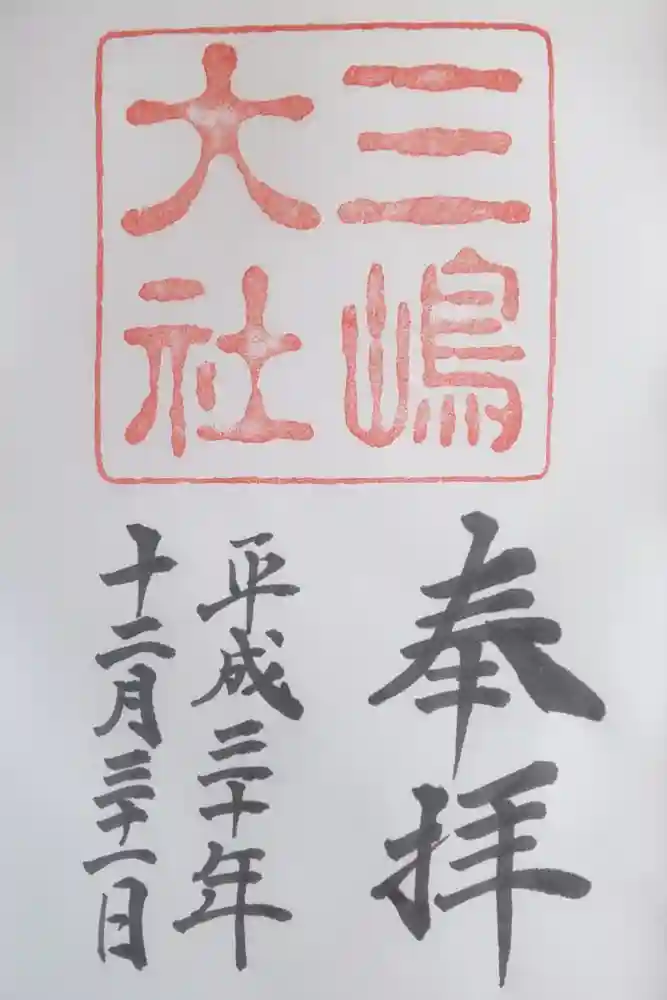 三嶋
大社
奉拝
平成三十年
十二月三十一日